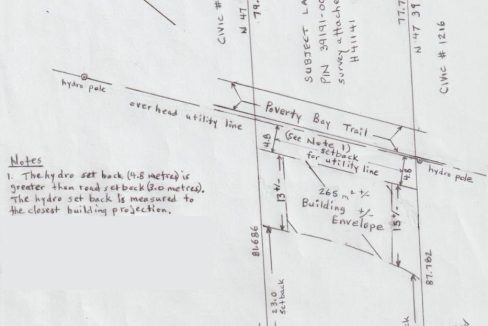 Civic #
N 47
79.
SUBJECT LA
PIN 39191-00
survey attache
H41141
77.7
N 47 39
Civic # 1216
hydro pole
overhead utility line
Poverty Bay Trail
(see Note 1)
setback
for utility line
4.8
4.8
hydro pole
Notes
1. The hydro set back (4.8 metres) is
greater than road setback (3.0 metres).
The hydro set back is measured to
the closest building projection.
13 +/-
265 m² +/-
Building +/-
Envelope
15 +/-
82.686
87.782
23.0
setback